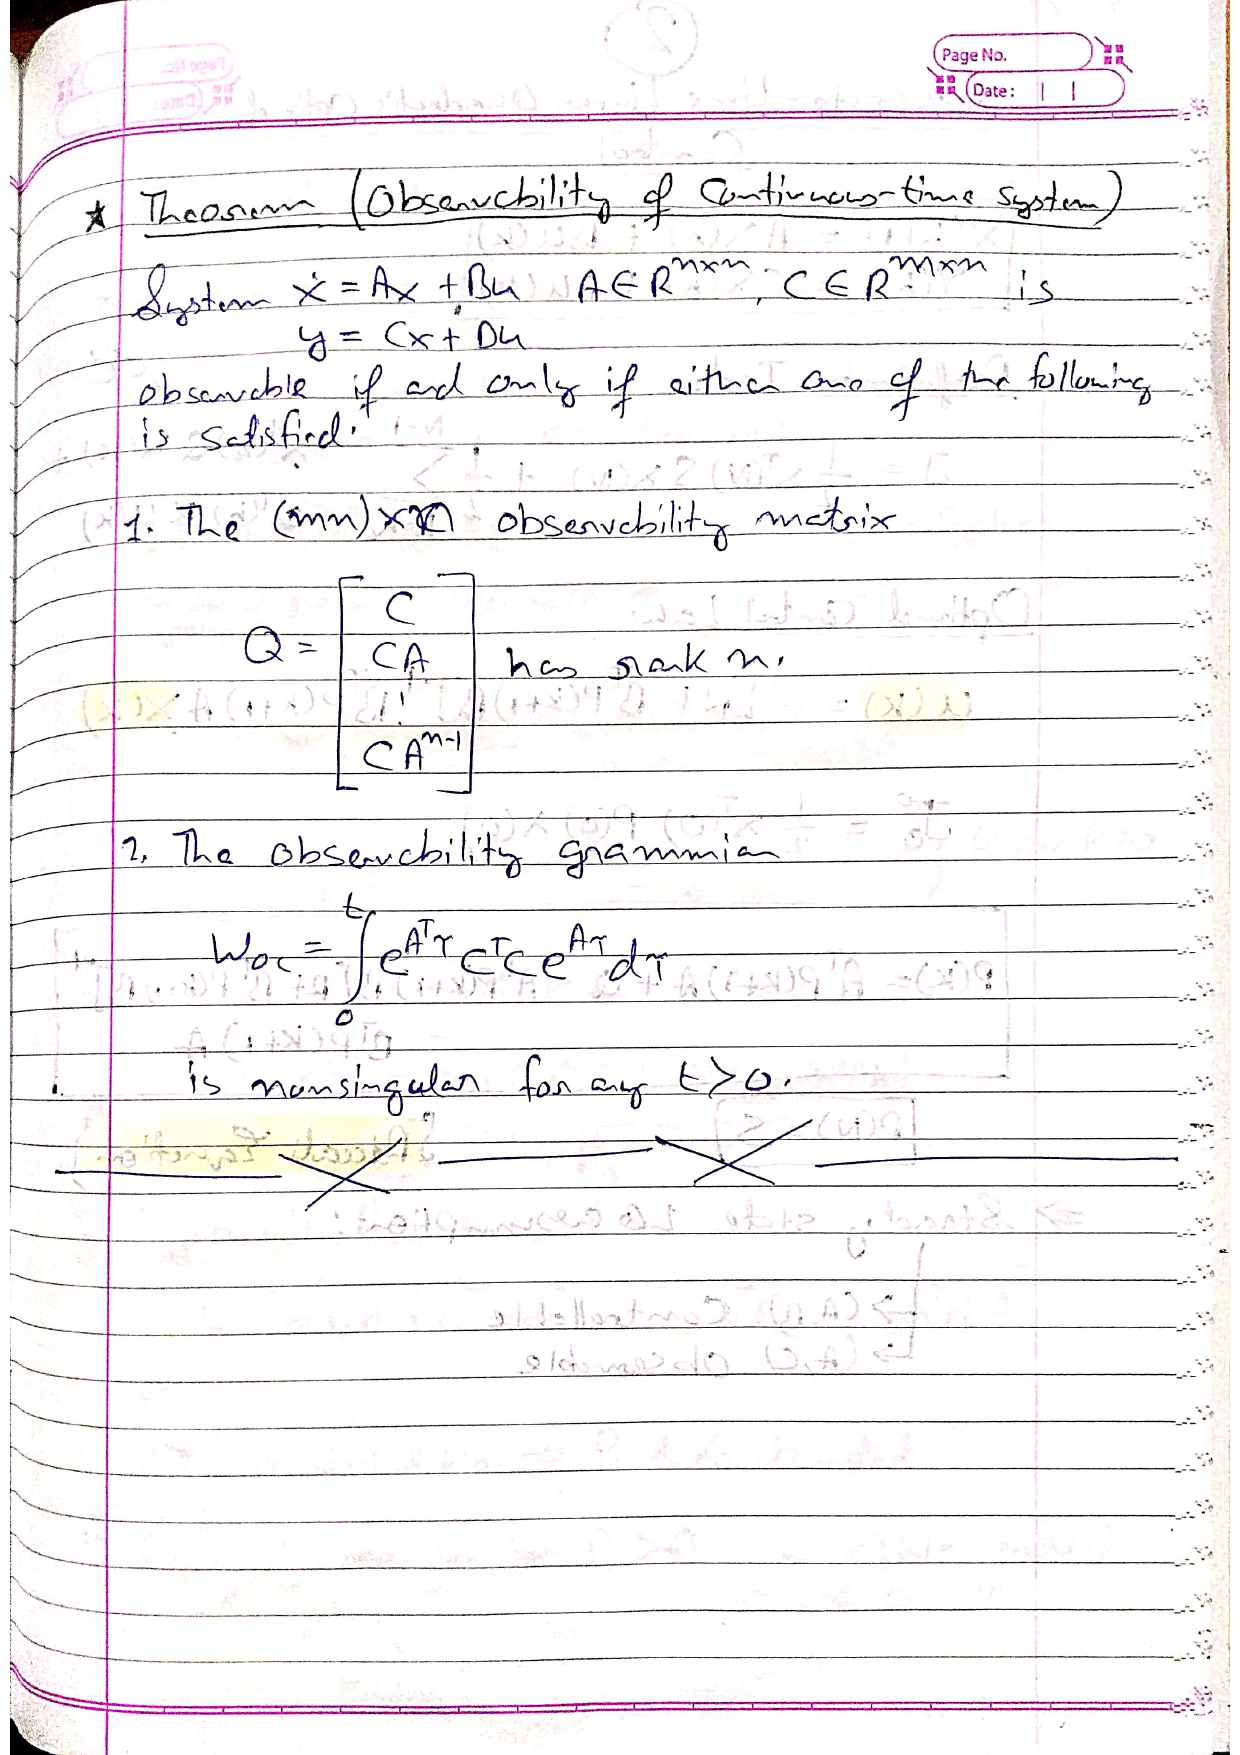 Page No.
Date:
★ Theorem (Observability of Continuous-time System)
System ẋ = Ax + Bu A ∈ R^{n×n}, C ∈ R^{m×n} is
y = Cx + Du
observable if and only if either one of the following
is satisfied.
1. The (mn)×n observability matrix
Q = [ C
CA
⋮
CA^{n-1} ] has rank n.
2. The observability grammian
W_{oc} = ∫_0^t e^{A^T τ} C^T C e^{Aτ} dτ
is nonsingular for any t>0.